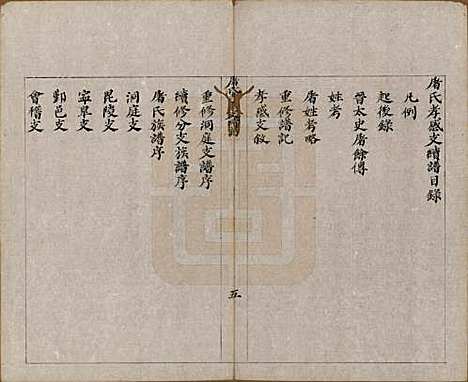 屠氏孝感支續譜目錄
凡例
起後錄
晉太史屠餘傳
姓考
屠姓考略
重修譜記
孝感支敘
五
重修洞庭支譜序
續修分支族譜序
屠氏族譜序
洞庭支
毘陵支
寧阜支
鄞邑支
會稽支